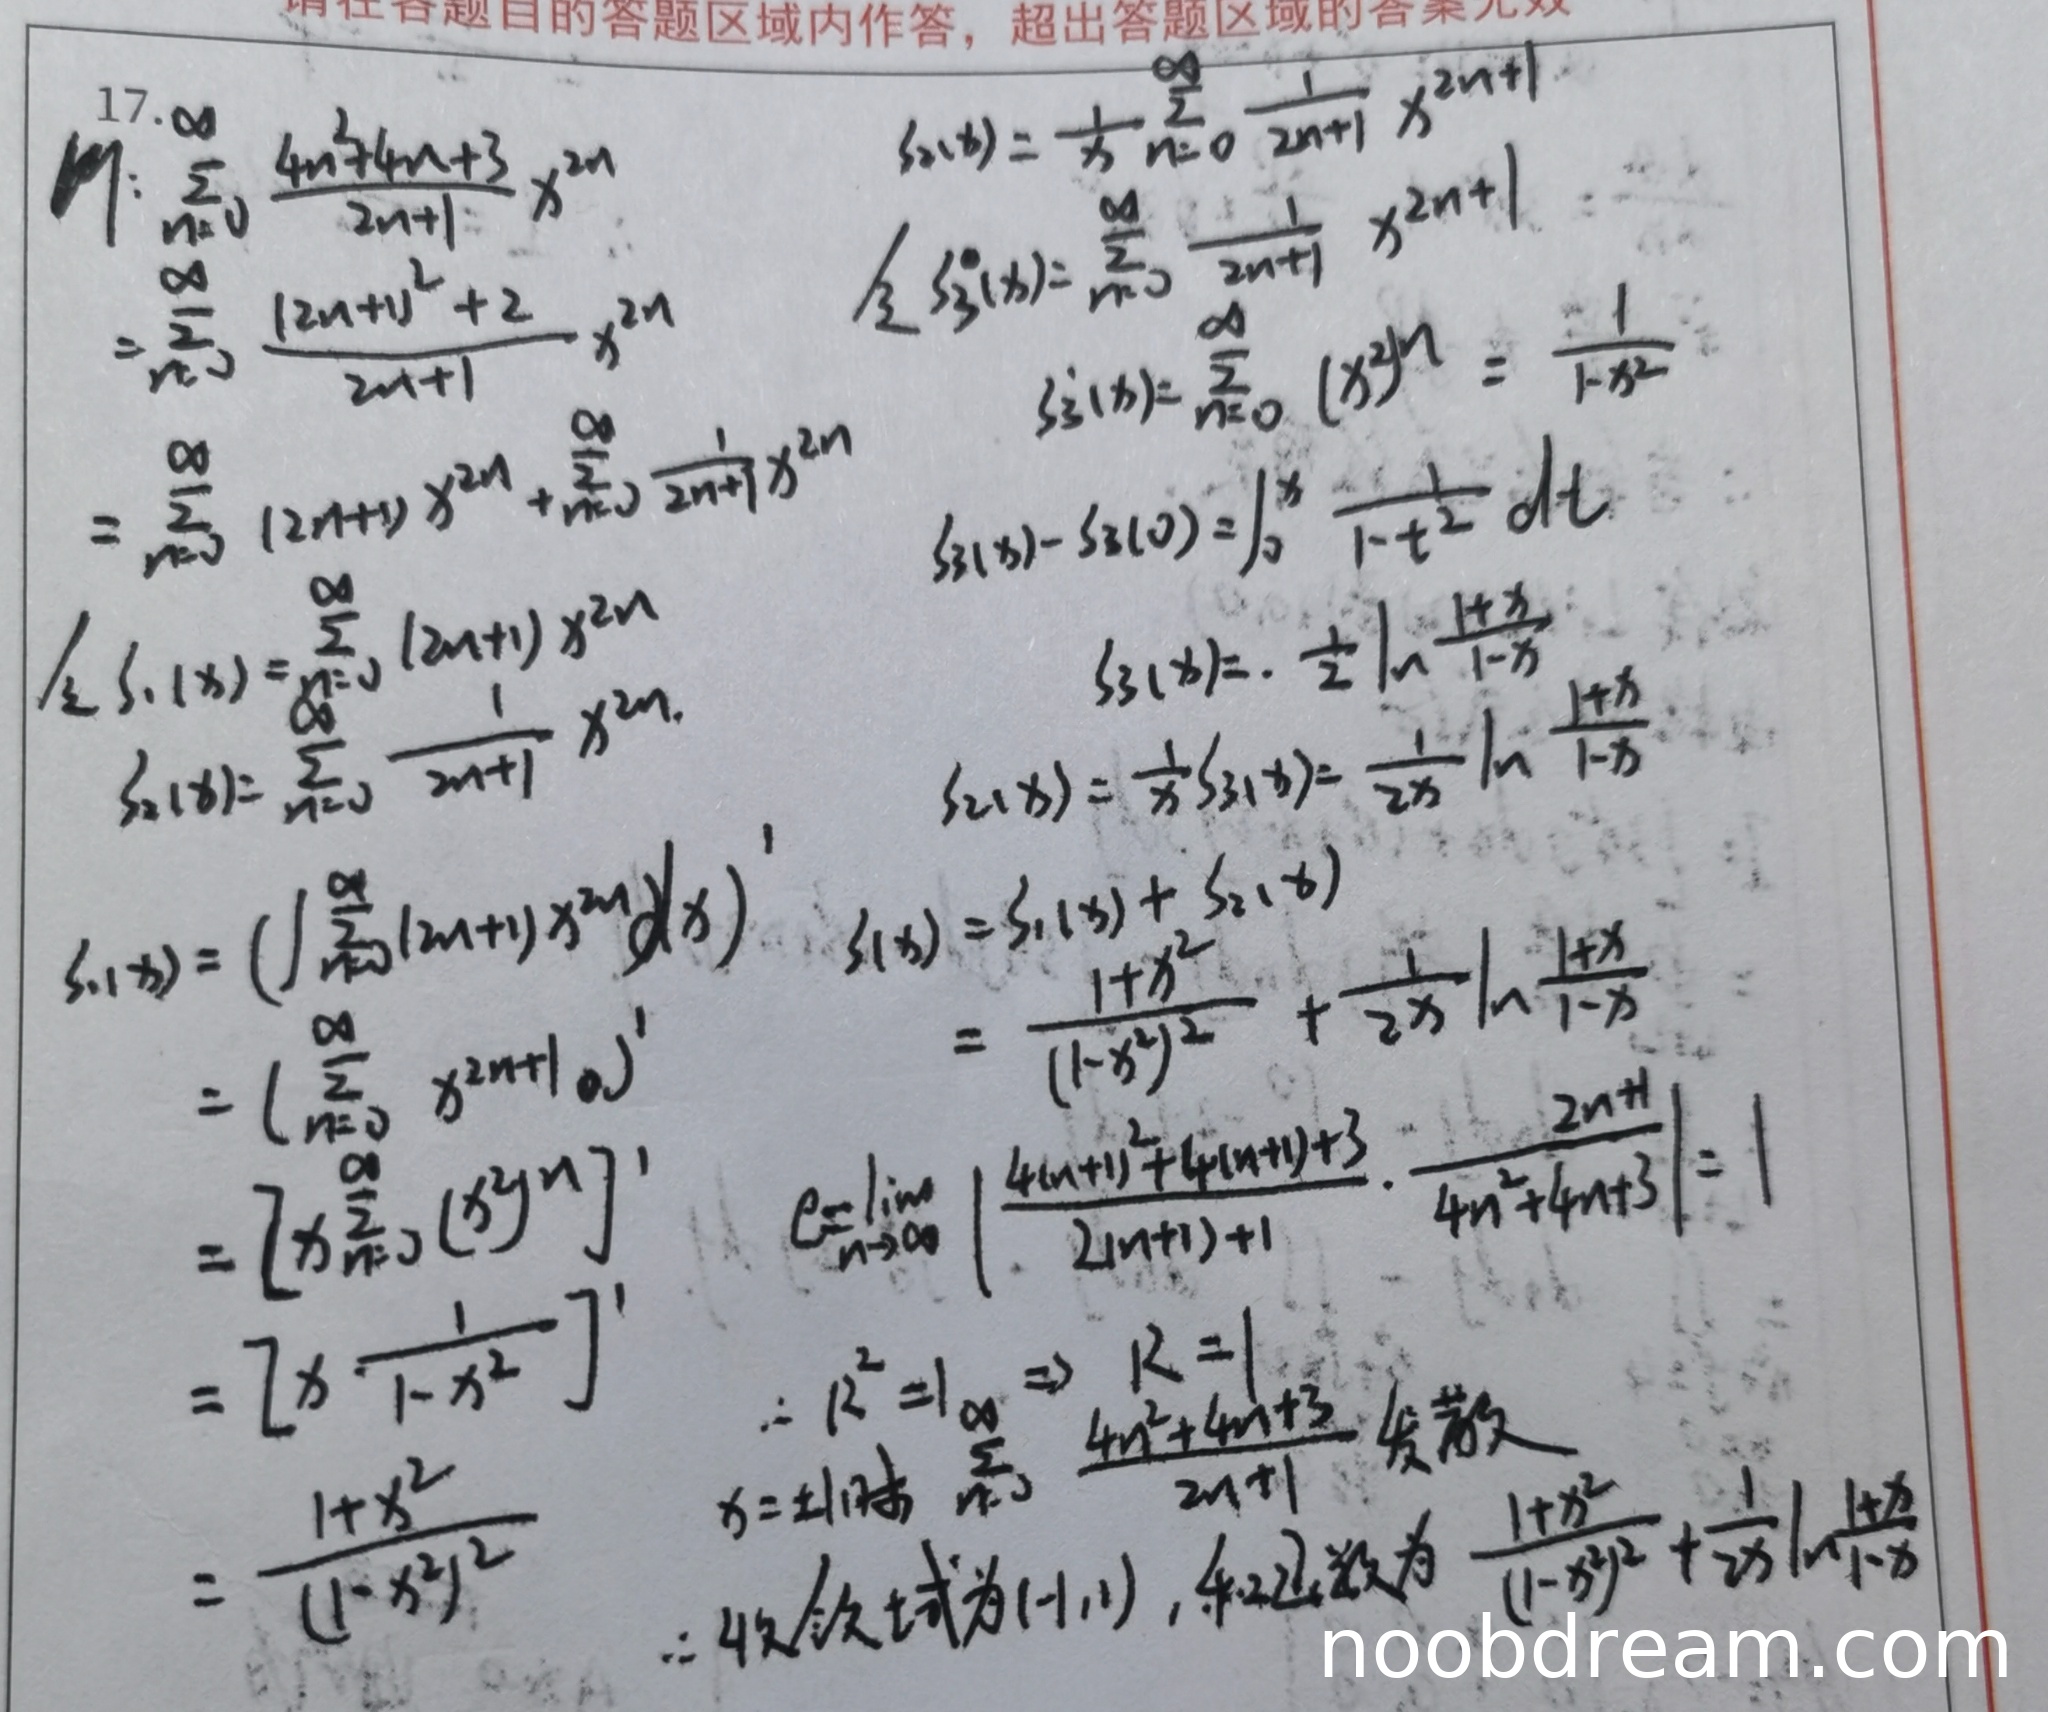 请在各题目的答题区域内作答，超出答题区域的答案无效
17.
解: \sum_{n=0}^{\infty} \frac{4n^2+4n+3}{2n+1} x^{2n}
= \sum_{n=0}^{\infty} \frac{(2n+1)^2+2}{2n+1} x^{2n}
= \sum_{n=0}^{\infty} (2n+1) x^{2n} + \sum_{n=0}^{\infty} \frac{1}{2n+1} x^{2n}
令 S_1(x) = \sum_{n=0}^{\infty} (2n+1) x^{2n}
S_2(x) = \sum_{n=0}^{\infty} \frac{1}{2n+1} x^{2n}.
S_1(x) = (\int \sum_{n=0}^{\infty} (2n+1) x^{2n} d(x))'
= (\sum_{n=0}^{\infty} x^{2n+1})'
= [x \sum_{n=0}^{\infty} (x^2)^n]'
= [x \cdot \frac{1}{1-x^2}]'
= \frac{1+x^2}{(1-x^2)^2}
S_2(x) = \frac{1}{x} \sum_{n=0}^{\infty} \frac{1}{2n+1} x^{2n+1}
令 S_3(x) = \sum_{n=0}^{\infty} \frac{1}{2n+1} x^{2n+1}
S_3'(x) = \sum_{n=0}^{\infty} (x^2)^n = \frac{1}{1-x^2}
S_3(x) - S_3(0) = \int_0^x \frac{1}{1-t^2} dt
S_3(x) = \frac{1}{2} \ln \frac{1+x}{1-x}
S_2(x) = \frac{1}{x} S_3(x) = \frac{1}{2x} \ln \frac{1+x}{1-x}
S(x) = S_1(x) + S_2(x)
= \frac{1+x^2}{(1-x^2)^2} + \frac{1}{2x} \ln \frac{1+x}{1-x}
ρ = \lim_{n→∞} | \frac{4(n+1)^2+4(n+1)+3}{2(n+1)+1} \cdot \frac{2n+1}{4n^2+4n+3} | = 1
∴ R^2 = 1 ⇒ R = 1
x = ±1时 \sum_{n=0}^{\infty} \frac{4n^2+4n+3}{2n+1} 发散
∴ 收敛域为(-1,1), 和函数为 \frac{1+x^2}{(1-x^2)^2} + \frac{1}{2x} \ln \frac{1+x}{1-x}
noobdream.com